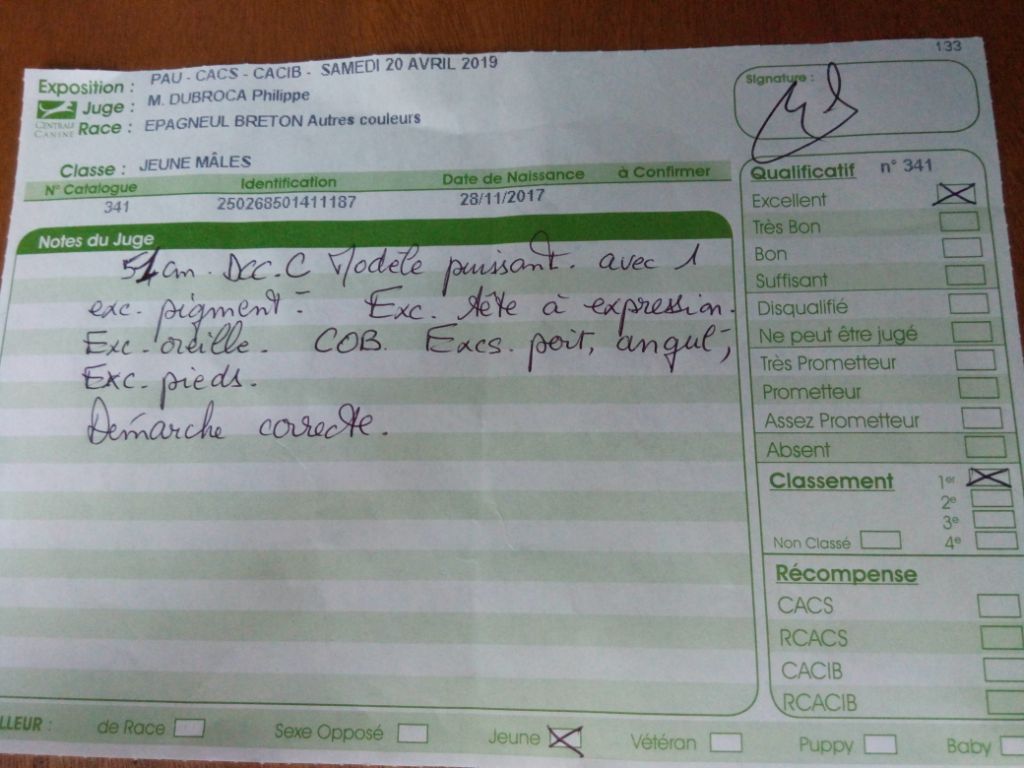 133
Exposition : PAU - CACS - CACIB - SAMEDI 20 AVRIL 2019
Juge : M. DUBROCA Philippe
CENTRALE CANINE
Race : EPAGNEUL BRETON Autres couleurs
Signature :
Classe : JEUNE MÂLES
N° Catalogue Identification Date de Naissance à Confirmer
341 250268501411187 28/11/2017
Notes du Juge
51 cm. DCC. C Modèle puissant. avec 1
exc. pigment - Exc. tête à expression.
Exc. oreille. COB. Excs. poit, angul-,
Exc. pieds.
Démarche correcte.
Qualificatif n° 341
Excellent
Très Bon
Bon
Suffisant
Disqualifié
Ne peut être jugé
Très Prometteur
Prometteur
Assez Prometteur
Absent
Classement 1er
2e
3e
Non Classé 4e
Récompense
CACS
RCACS
CACIB
RCACIB
LLEUR : de Race Sexe Opposé Jeune Vétéran Puppy Baby